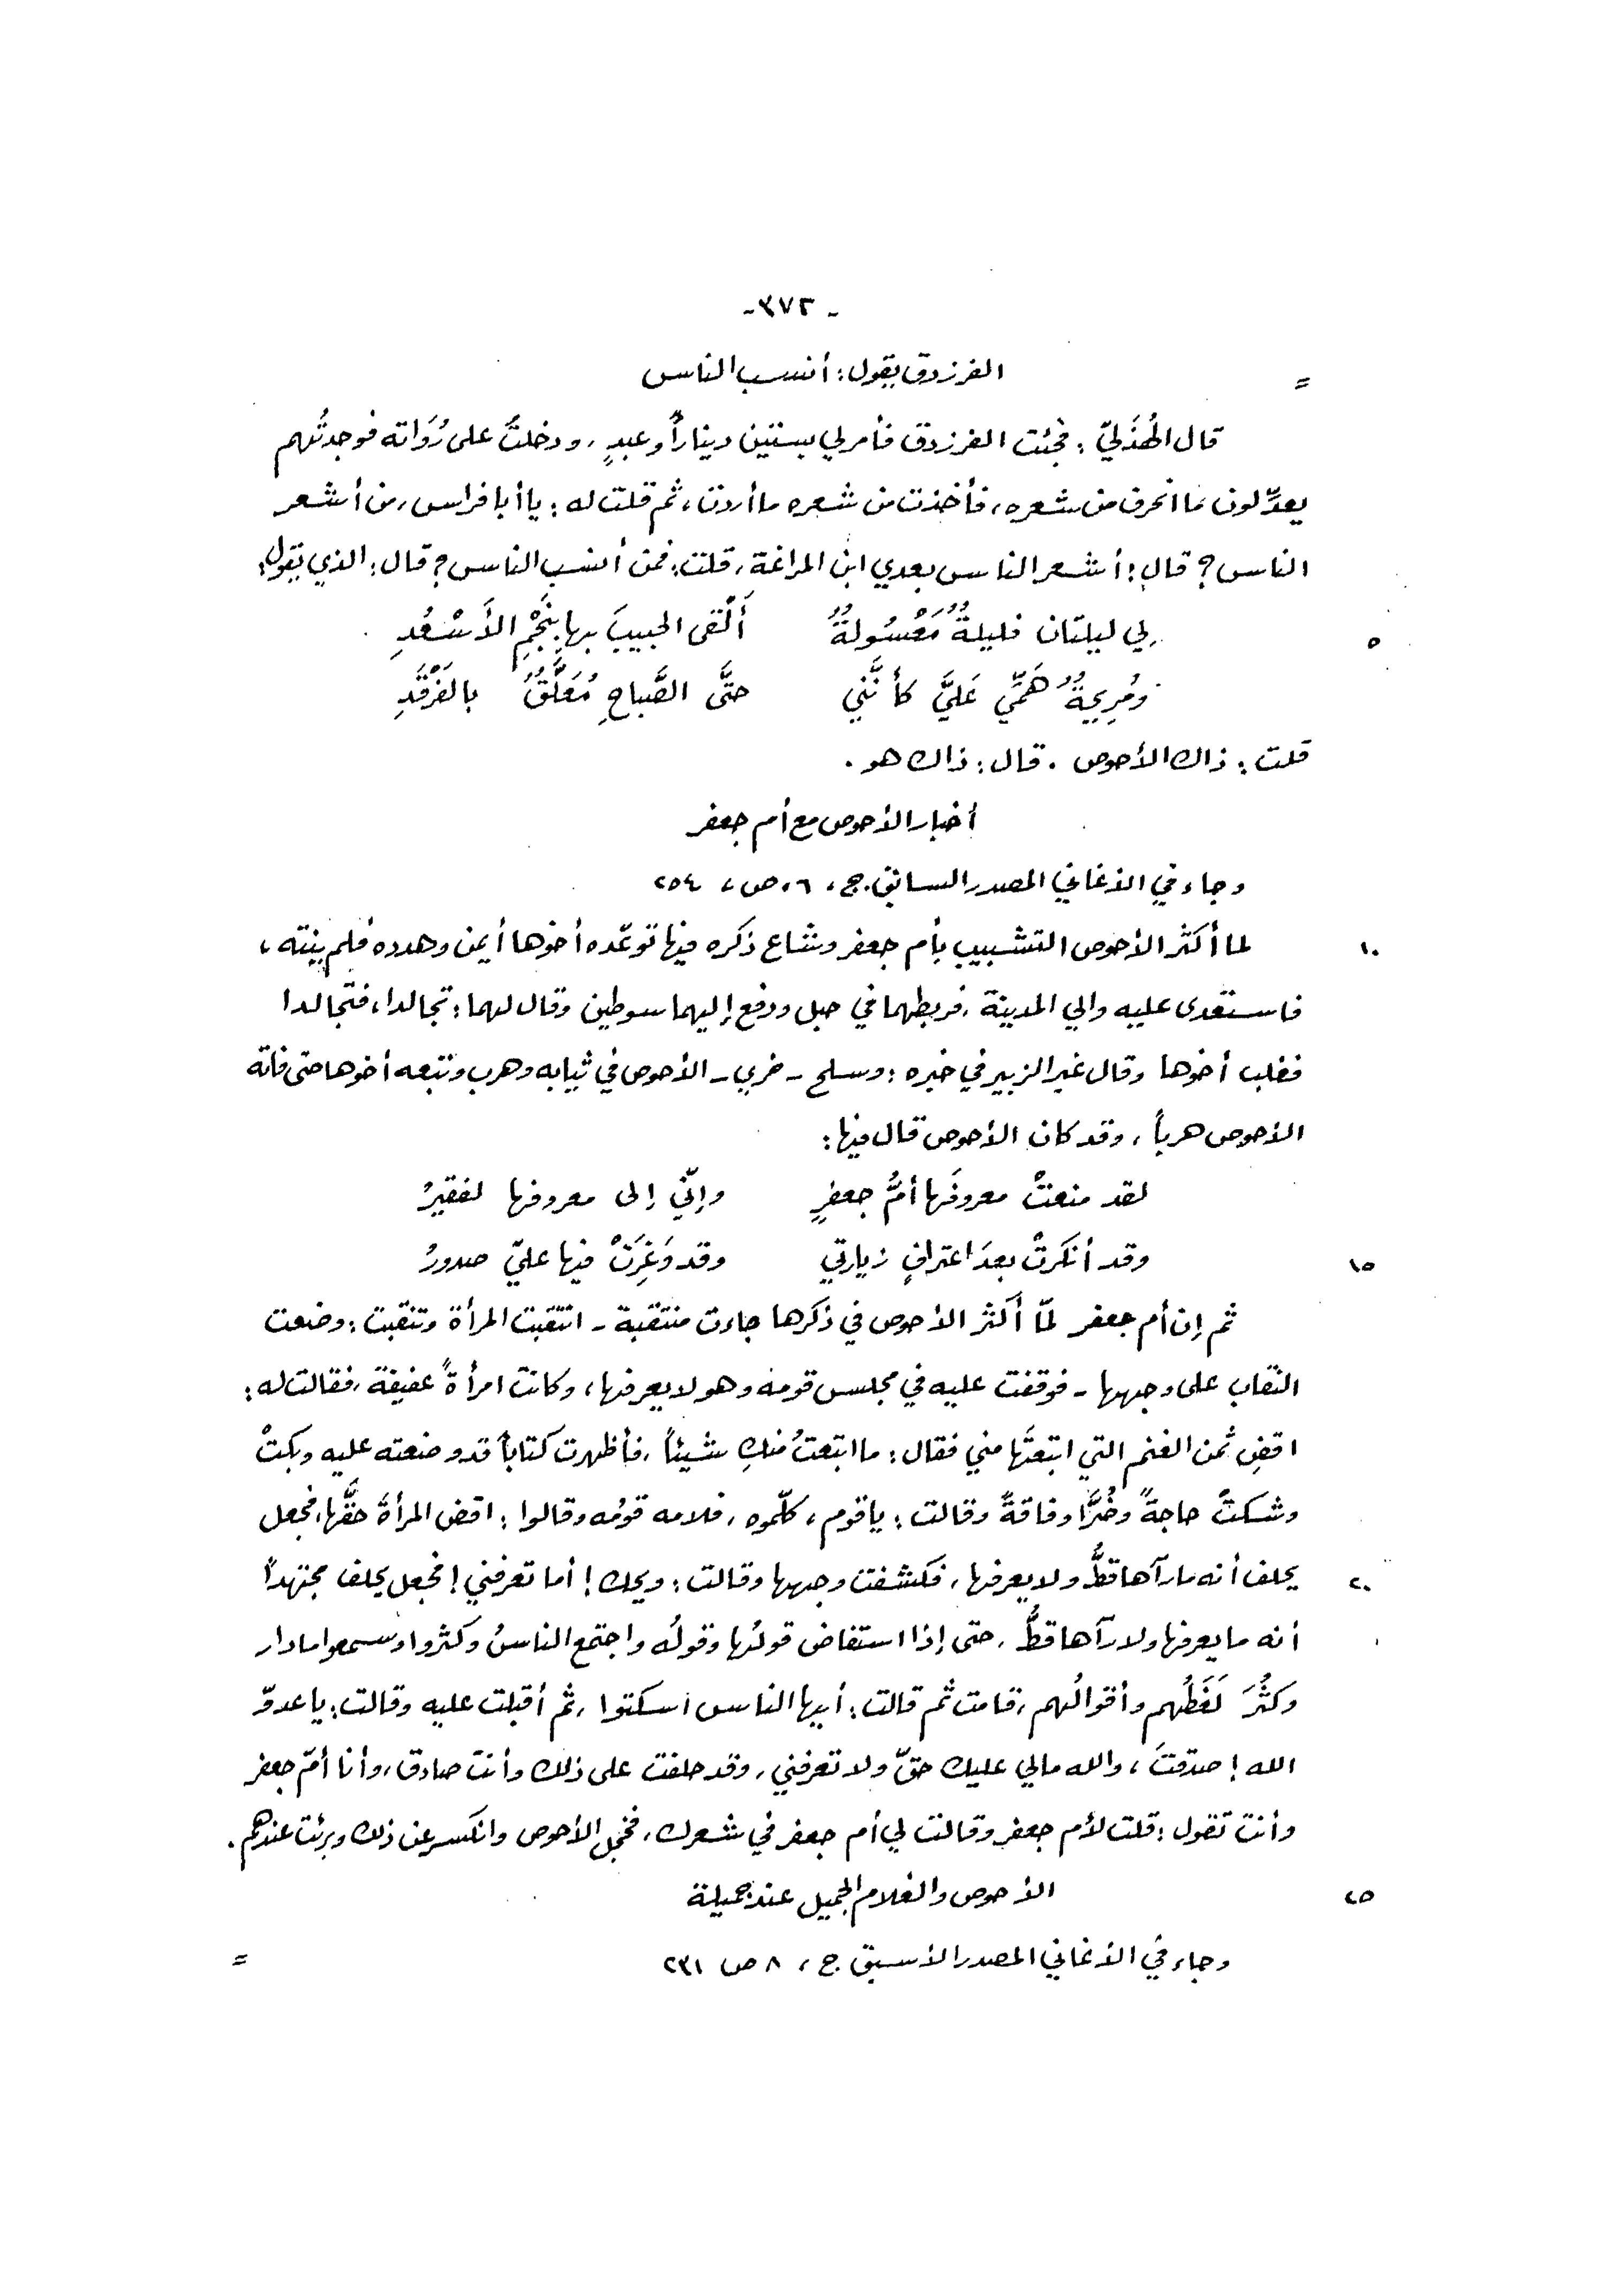 - ٣٧٢ -
= الفرزدق يقول: أنسب الناس
قال الهُذَليّ: فجئت الفرزدق فأمر لي بستين ديناراً وعبدٍ، ودخلتُ على رُوَاته فوجدتُهم
يعدِّلون ما انحرف من شعره، فأخذت من شعره ما أردت، ثم قلت له: يا أبا فراس، من أشعر
الناس؟ قال: أشعر الناس بعدي ابن المراغة، قلت: فمن أنسب الناس؟ قال: الذي يقول:
٥ لي ليلتان فليلةٌ مَعْسُولةٌ ألْقَى الحبيبَ بها بِنَجْمِ الأَسْعُدِ
ومُرِيحةٌ هَمِّي عَليَّ كأنَّني حتَّى الصَّباحِ مُعَلَّقٌ بالفَرْقَدِ
قلت: ذاك الأحوص. قال: ذاك هو.
أخبار الأحوص مع أم جعفر
وجاء في الأغاني المصدر السابق. ج، ٦، ص، ٢٥٤
١٠ لما أكثر الأحوص التشبيب بأم جعفر وشاع ذكره فيها توعّده أخوها أيمن وهدده فلم ينته،
فاستعدى عليه والي المدينة، فربطهما في حبل ودفع إليهما سوطين وقال لهما: تجالدا، فتجالدا
فغلب أخوها وقال غير الزبير في خبره: وسلح - خري - الأحوص في ثيابه وهرب وتبعه أخوها حتى فاته
الأحوص هرباً، وقد كان الأحوص قال فيها:
لقد منعتْ معروفَها أمُّ جعفرٍ وإنّي إلى معروفها لفقيرُ
١٥ وقد أنكرتْ بعدَ اعترافٍ زيارتي وقد وَغِرَتْ فيها عليّ صدورُ
ثم إن أم جعفر لمّا أكثر الأحوص في ذكرها جاءت منتقبة - انتقبت المرأة وتنقبت: وضعت
النقاب على وجهها - فوقفت عليه في مجلس قومه وهو لا يعرفها، وكانت امرأةً عفيفة، فقالت له:
اقضِ ثمن الغنم التي ابتعتَها مني فقال: ما ابتعتُ منكِ شيئاً، فأظهرت كتاباً قد وضعته عليه وبكتْ
وشكتْ حاجةً وضُرًّا وفاقةً وقالت: يا قوم، كلّموه، فلامه قومُه وقالوا: اقض المرأةَ حقَّها، فجعل
٢٠ يحلف أنه ما رآها قطُّ ولا يعرفها، فكشفت وجهها وقالت: ويحك! أما تعرفني! فجعل يحلف مجتهداً
أنه ما يعرفها ولا رآها قطُّ، حتى إذا استفاض قولُها وقولُه واجتمع الناسُ وكثروا وسمعوا ما دار
وكثُرَ لَغَطُهم وأقوالُهم، قامت ثم قالت: أيها الناس اسكتوا، ثم أقبلت عليه وقالت: يا عدوّ
الله! صدقتَ، والله مالي عليك حقّ ولا تعرفني، وقد حلفت على ذلك وأنتَ صادق، وأنا أمّ جعفر
وأنتَ تقول: قلت لأم جعفر وقالت لي أم جعفر في شعرك، فخجل الأحوص وانكسر عن ذلك وبرئت عندهم.
٢٥ الأحوص والغلام الجميل عند جميلة
وجاء في الأغاني المصدر الأسبق ج، ٨ ص ٢٣١ =